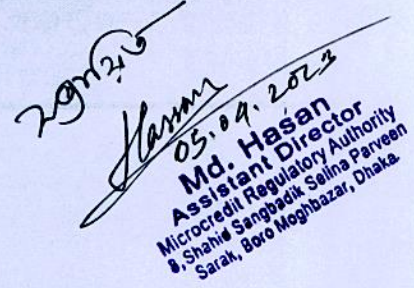 সত্যায়িত
Hasan
05.09.2023
Md. Hasan
Assistant Director
Microcredit Regulatory Authority
8, Shahid Sangbadik Selina Parveen
Sarak, Boro Moghbazar, Dhaka.